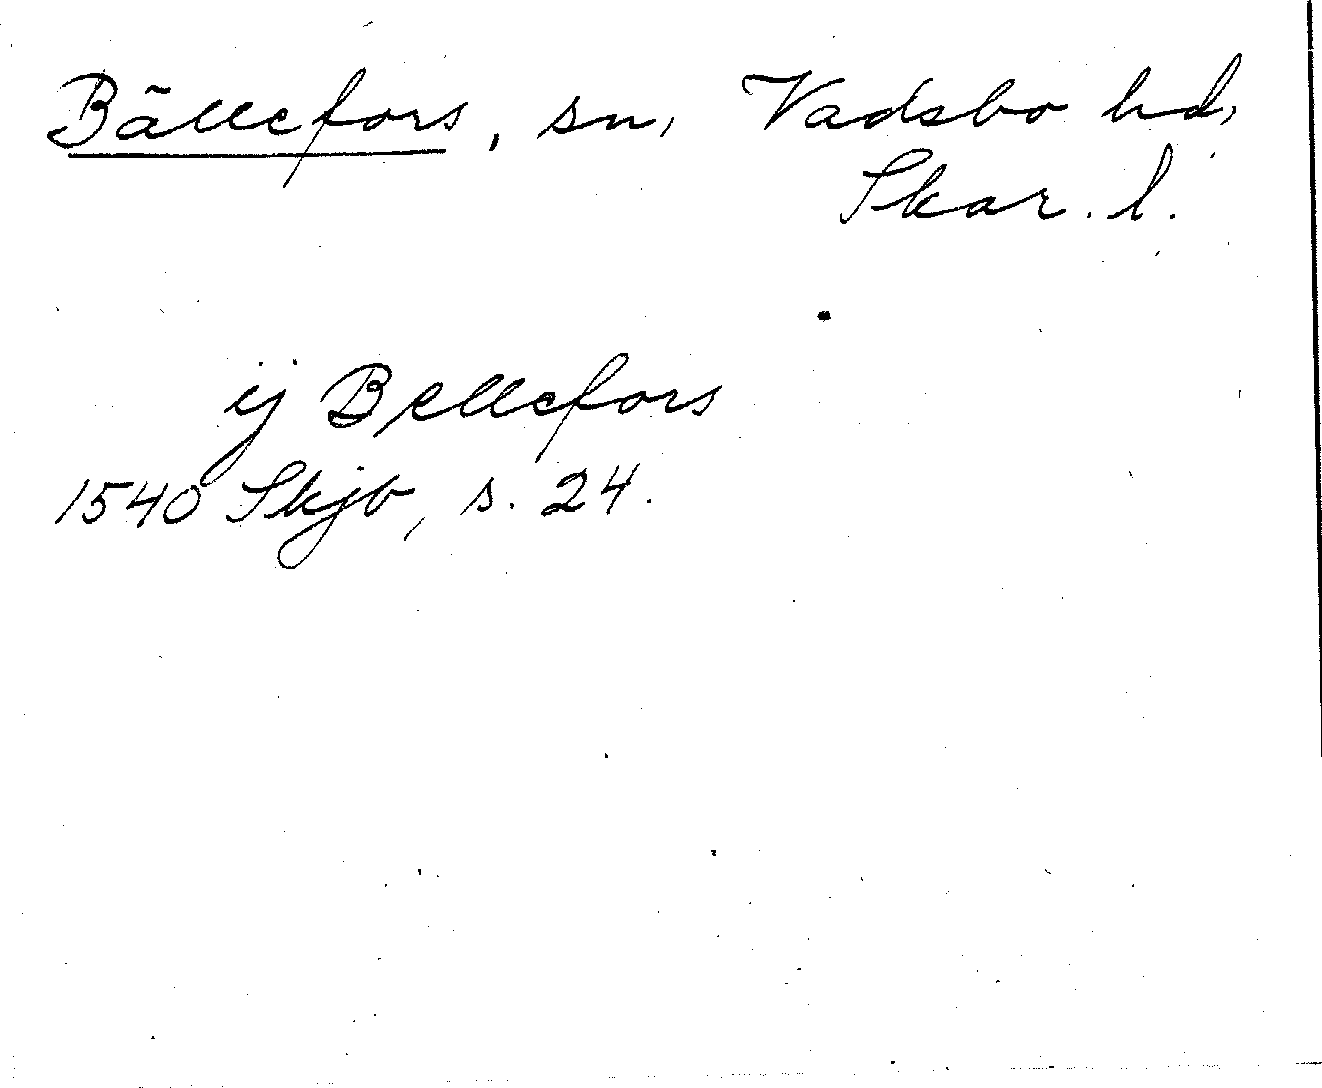 Bällefors, sn, Vadsbo hd,
Skar. l.
ij Bellefors
1540 Skjb, s. 24.